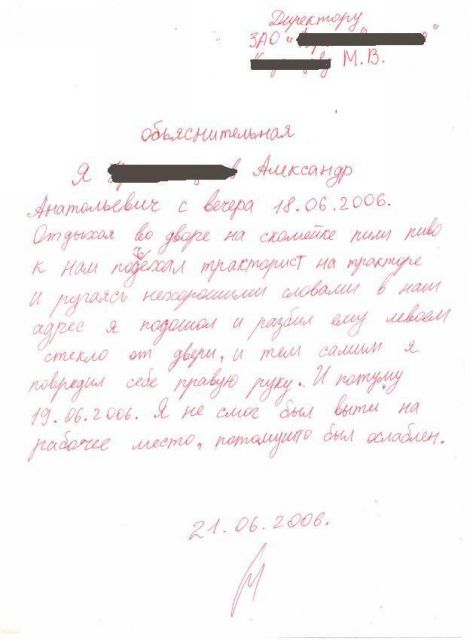 Директору
ЗАО "
М.В.
обьяснительная
Я Александр
Анатольевич с вечера 18.06.2006.
Отдыхая во дворе на скомейке пили пиво
к нам подъехал тракторист на тракторе
и ругаясь нехорошими словами в наш
адрес я подошол и разбил ему левоем
стекло от двери, и тем самим я
повредил себе правую руку. И потуму
19.06.2006. Я не смог был выти на
рабочее место, потомушто был ослаблен.
21.06.2006.